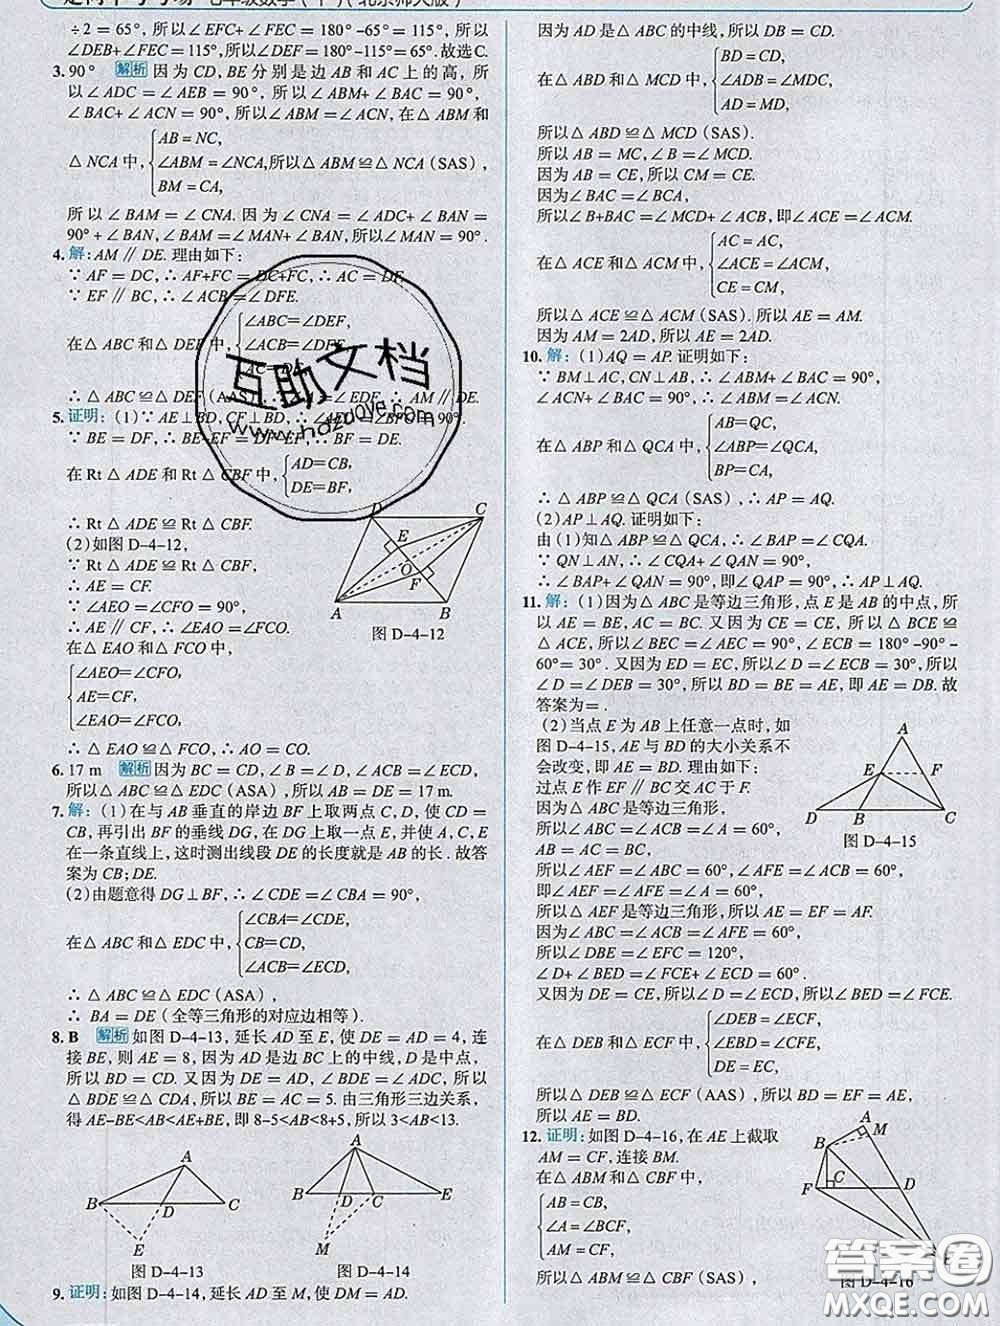 走向中考考场 七年级数学(下)(北京师大版)
÷2=65°,所以∠EFC+∠FEC=180°-65°=115°,所以
∠BEF+∠NFC=115°,所以∠D=180°-115°=65°.故选C.
3. 90° 解析 因为CD,BE分别是边AB和AC上的高,所
以∠ADC=∠AEB=90°,所以∠ABM+∠BAC=90°,
∠BAC+∠ACN=90°,所以∠ABM=∠ACN,在△ABM和
AB=NC,
△NCA中, ∠ABM=∠NCA,所以△ABM≌△NCA(SAS),
BM=CA,
所以∠BAM=∠CNA.因为∠CNA=∠ADC+∠BAN=
90°+∠BAN,∠BAM=∠MAN+∠BAN,所以∠MAN=90°.
4. 解:AM∥DE.理由如下:
∵AF=DC,∴AF+FC=DC+FC,∴AC=DF.
∵EF∥BC,∴∠ACB=∠DFE.
∠ABC=∠DEF,
在△ABC和△DEF中, ∠ACB=∠DFE,
AC=DF,
∴△ABC≌△DEF(AAS),∴∠A=∠EDF,∴AM∥DE.
5. 证明:(1)∵AE⊥BD,CF⊥BD,∴∠AED=∠CFB=90°.
∵BE=DF,∴BE-EF=DF-EF,∴BF=DE.
在Rt△ADE和Rt△CBF中, AD=CB,
DE=BF,
∴Rt△ADE≌Rt△CBF.
(2)如图D-4-12,
∵Rt△ADE≌Rt△CBF,
∴AE=CF.
∵∠AEO=∠CFO=90°,
∴AE∥CF,∴∠EAO=∠FCO.
在△EAO和△FCO中,
∠AEO=∠CFO,
AE=CF,
∠EAO=∠FCO,
∴△EAO≌△FCO,∴AO=CO.
D C E O F A B
图D-4-12
6. 17 m 解析 因为BC=CD,∠B=∠D,∠ACB=∠ECD,
所以△ABC≌△EDC(ASA),所以AB=DE=17 m.
7. 解:(1)在与AB垂直的岸边BF上取两点C,D,使CD=
CB,再引出BF的垂线DG,在DG上取一点E,并使A,C,E
在一条直线上,这时测出线段DE的长度就是AB的长.故答
案为CB;DE.
(2)由题意得DG⊥BF,∴∠CDE=∠CBA=90°,
∠CBA=∠CDE,
在△ABC和△EDC中, CB=CD,
∠ACB=∠ECD,
∴△ABC≌△EDC(ASA),
∴BA=DE(全等三角形的对应边相等).
8. B 解析 如图D-4-13,延长AD至E,使DE=AD=4,连
接BE,则AE=8,因为AD是边BC上的中线,D是中点,
所以BD=CD.又因为DE=AD,∠BDE=∠ADC,所以
△BDE≌△CDA,所以BE=AC=5.由三角形三边关系,
得AE-BE<AB<AE+BE,即8-5<AB<8+5,所以3<AB<13.
A B D C E
图D-4-13
A B D C E M
图D-4-14
9. 证明:如图D-4-14,延长AD至M,使DM=AD.
因为AD是△ABC的中线,所以DB=CD.
BD=CD,
在△ABD和△MCD中, ∠ADB=∠MDC,
AD=MD,
所以△ABD≌△MCD(SAS).
所以AB=MC,∠B=∠MCD.
因为AB=CE,所以CM=CE.
因为∠BAC=∠BCA,
所以∠B+BAC=∠MCD+∠ACB,即∠ACE=∠ACM.
AC=AC,
在△ACE和△ACM中, ∠ACE=∠ACM,
CE=CM,
所以△ACE≌△ACM(SAS).所以AE=AM.
因为AM=2AD,所以AE=2AD.
10. 解:(1)AQ=AP.证明如下:
∵BM⊥AC,CN⊥AB,∴∠ABM+∠BAC=90°,
∠ACN+∠BAC=90°,∴∠ABM=∠ACN.
AB=QC,
在△ABP和△QCA中, ∠ABP=∠QCA,
BP=CA,
∴△ABP≌△QCA(SAS),∴AP=AQ.
(2)AP⊥AQ.证明如下:
由(1)知△ABP≌△QCA,∴∠BAP=∠CQA.
∵QN⊥AN,∴∠CQA+∠QAN=90°,
∴∠BAP+∠QAN=90°,即∠QAP=90°,∴AP⊥AQ.
11. 解:(1)因为△ABC是等边三角形,点E是AB的中点,所
以AE=BE,AC=BC.又因为CE=CE,所以△BCE≌
△ACE,所以∠BEC=∠AEC=90°,∠ECB=180°-90°-
60°=30°.又因为ED=EC,所以∠D=∠ECB=30°,所以
∠D=∠DEB=30°,所以BD=BE=AE,即AE=DB.故
答案为=.
(2)当点E为AB上任意一点时,如
图D-4-15,AE与BD的大小关系不
会改变,即AE=BD.理由如下:
过点E作EF∥BC交AC于F.
因为△ABC是等边三角形,
所以∠ABC=∠ACB=∠A=60°,
AB=AC=BC,
所以∠AEF=∠ABC=60°,∠AFE=∠ACB=60°,
即∠AEF=∠AFE=∠A=60°,
所以△AEF是等边三角形,所以AE=EF=AF.
因为∠ABC=∠ACB=∠AFE=60°,
所以∠DBE=∠EFC=120°,
∠D+∠BED=∠FCE+∠ECD=60°.
又因为DE=CE,所以∠D=∠ECD,所以∠BED=∠FCE.
∠DEB=∠ECF,
在△DEB和△ECF中, ∠EBD=∠CFE,
DE=EC,
所以△DEB≌△ECF(AAS),所以BD=EF,
所以AE=BD.
A E F D B C
图D-4-15
12. 证明:如图D-4-16,在AE上截取
AM=CF,连接BM.
在△ABM和△CBF中,
AB=CB,
∠A=∠BCF,
AM=CF,
所以△ABM≌△CBF(SAS),
A M B F C D
图D-4-16
互助文档
www.hdzuoye.com
答案圈
MXQE.COM